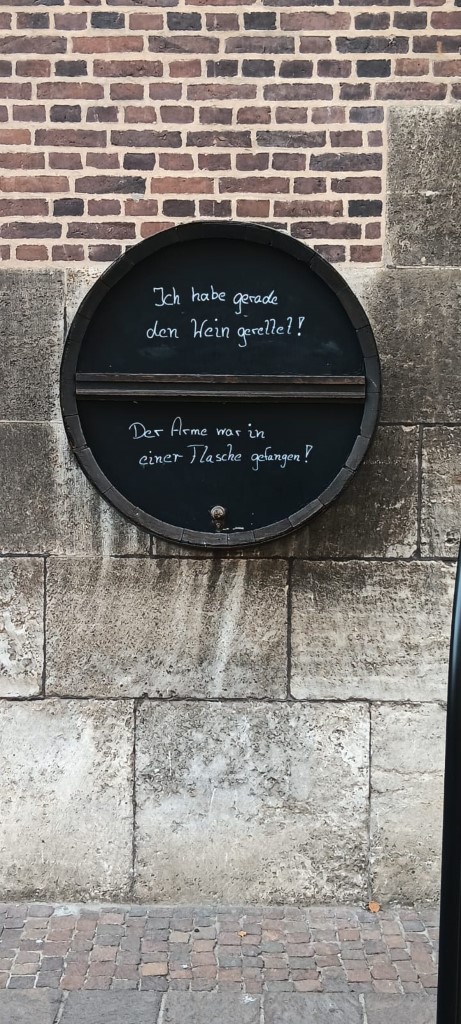 Ich habe gerade
den Wein gerettet!
Der Arme war in
einer Flasche gefangen!